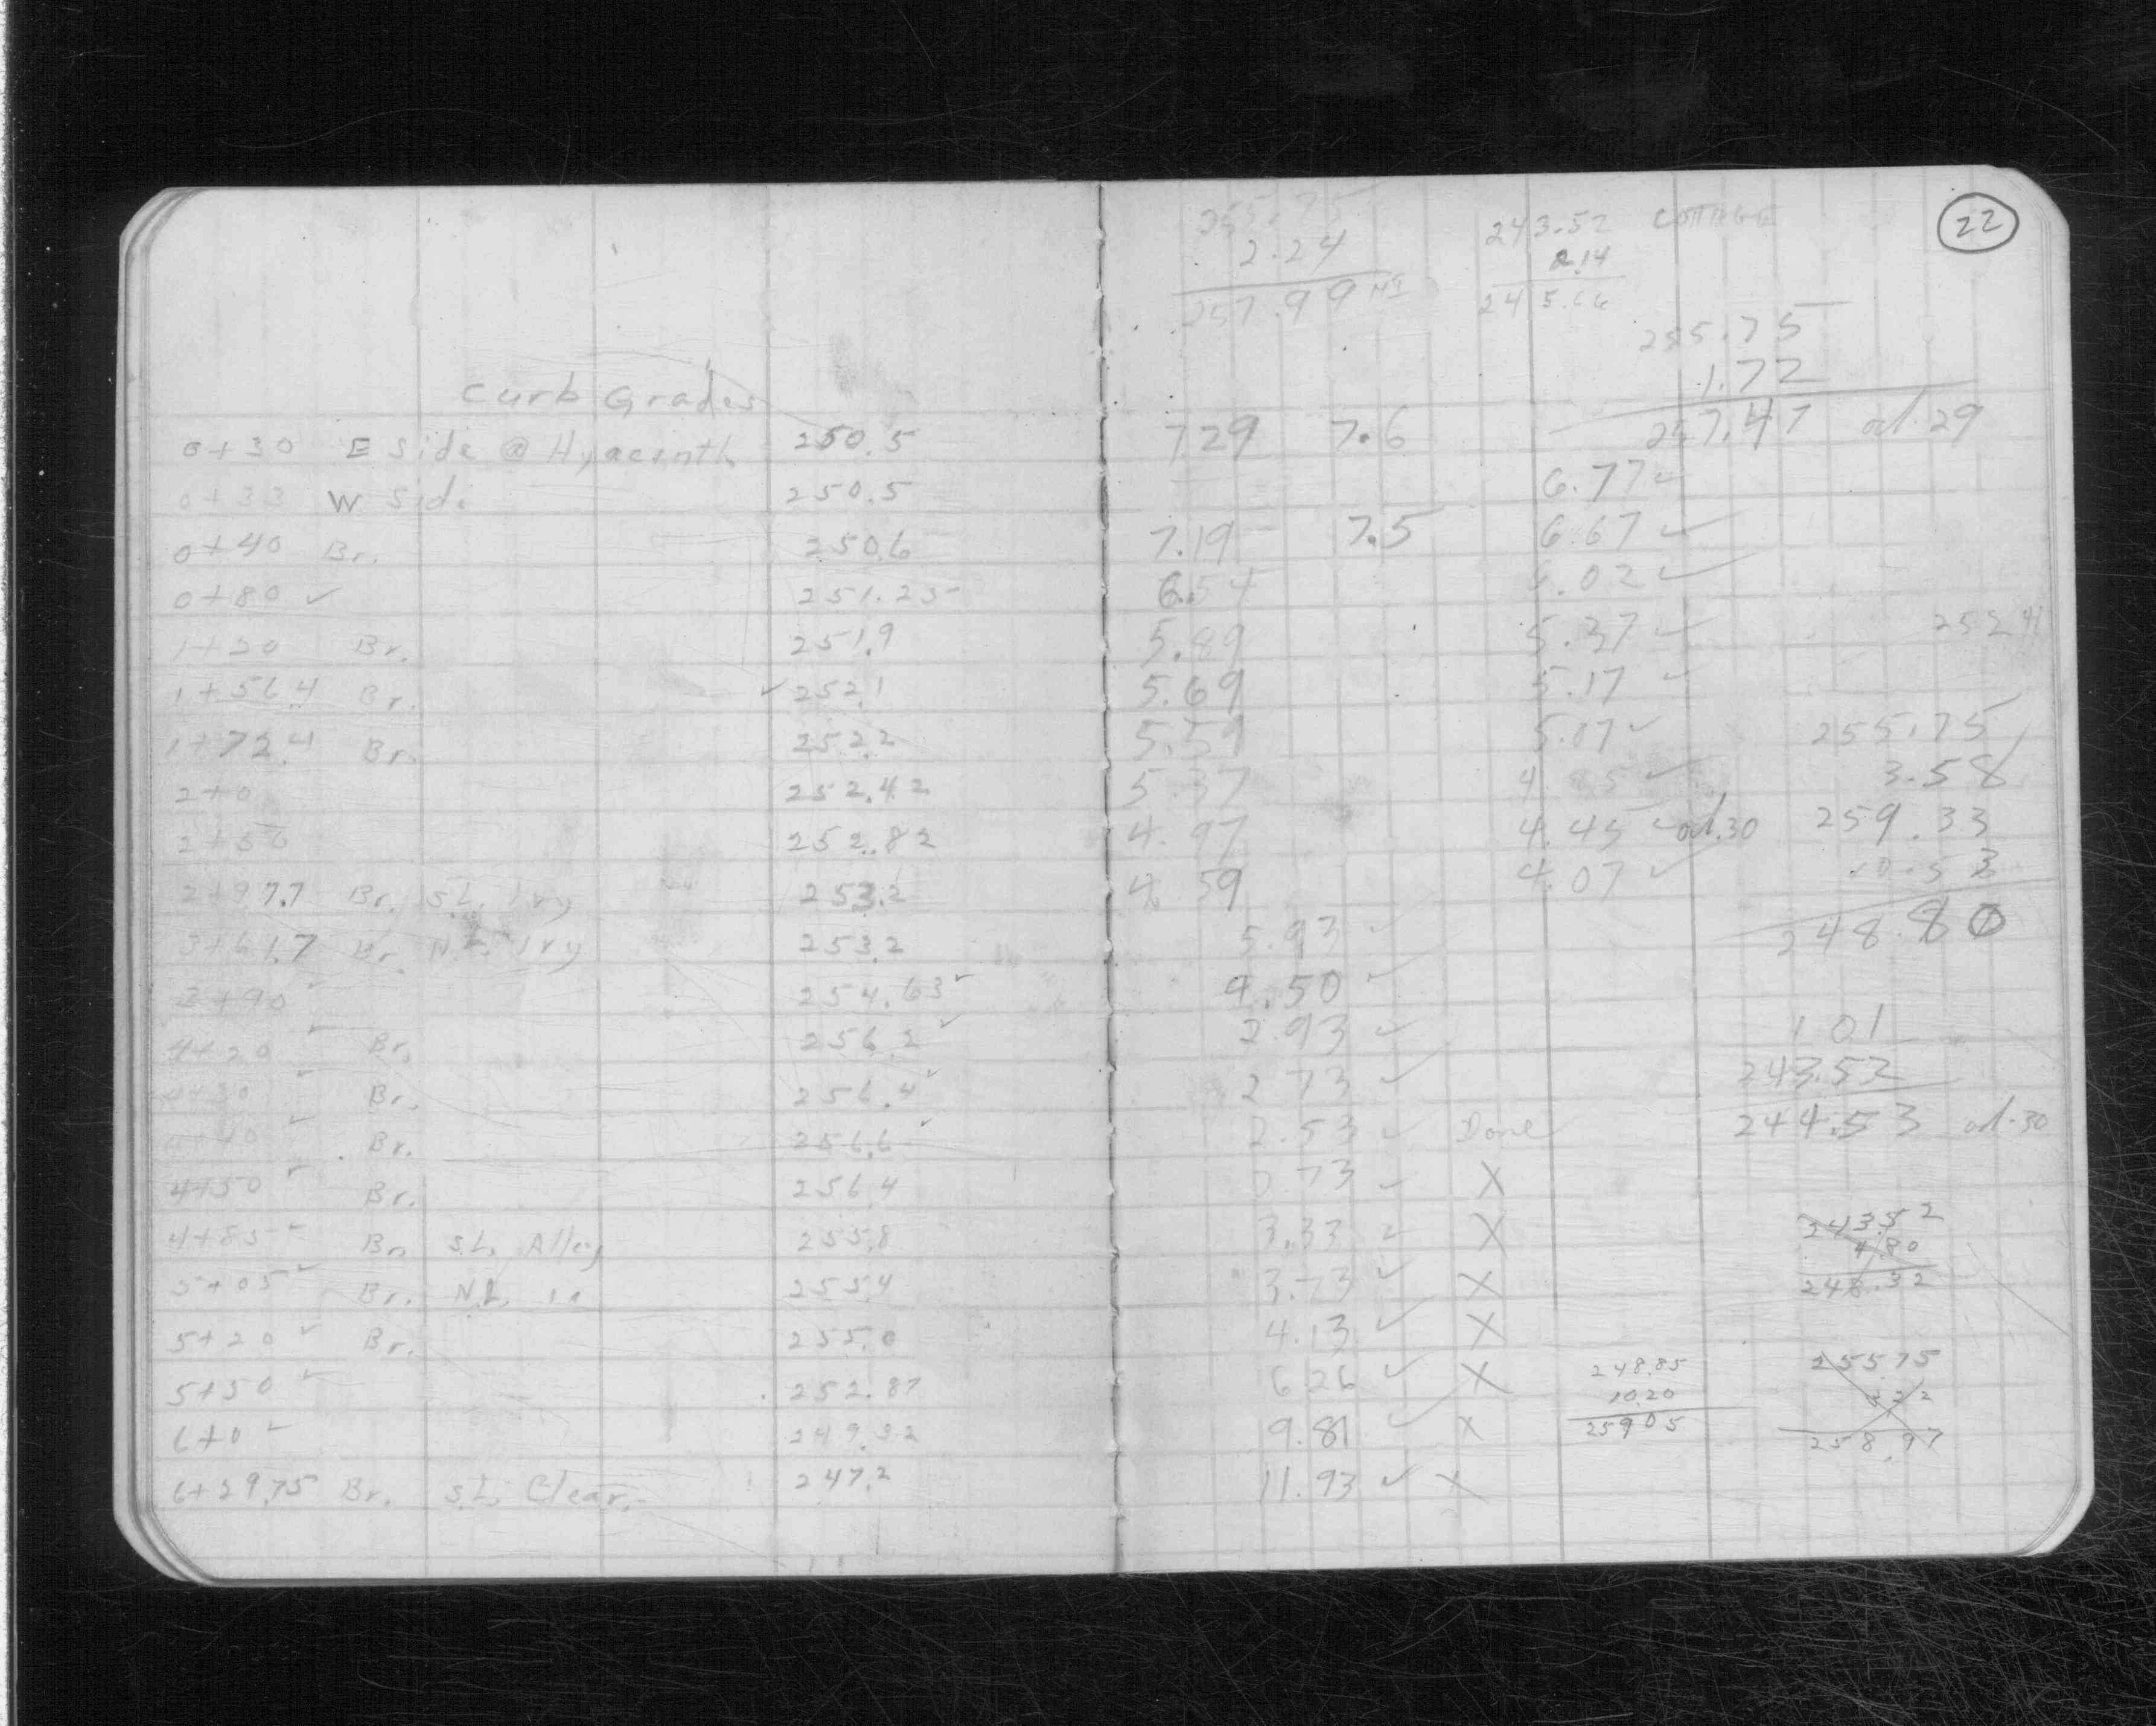 22
Curb Grades
0+30 E Side @ Hyacinth 250.5
0+33 W Side 250.5
0+40 Br. 250.6
0+80 ✓ 251.25
1+20 Br. 251.9
1+56.4 Br. ✓ 252.1
1+72.4 Br. 252.2
2+0 252.42
2+50 252.82
2+97.7 Br. S.L. Ivy 253.2
3+61.7 Br. N.L. Ivy 253.2
3+90 ✓ 254.63 ✓
4+20 ✓ Br. 256.2 ✓
4+30 ✓ Br. 256.4 ✓
4+40 ✓ Br. 256.6 ✓
4+50 ✓ Br. 256.4
4+85 ✓ Br. S.L. Alley 255.8
5+05 ✓ Br. N.L. 255.4
5+20 ✓ Br. 255.0
5+50 ✓ 252.87
6+0 ✓ 249.32
6+29.75 Br. S.L. Clear. 247.2
255.75
2.24
257.99 HI
243.52 COTTAGE
2.14
245.66
255.75
1.72
257.47 od. 29
7.29 7.6
6.77 ✓
7.19 7.5 6.67 ✓
6.54 6.02 ✓
5.89 5.37 ✓
5.69 5.17 ✓
5.59 5.07 ✓
5.37 4.95 ✓
4.97 4.45 ✓ od. 30
4.59 4.07 ✓
255.75
3.58
259.33
10.53
248.80
5.93 ✓
4.50 ✓
2.93 ✓
2.73 ✓
2.53 ✓ Done
2.73 ✓ X
3.33 ✓ X
3.73 ✓ X
4.13 ✓ X
6.26 ✓ X
9.81 ✓ X
11.93 ✓ X
1.01
243.52
244.53 od. 30
243.52
4.80
248.32
248.85
10.20
259.05
255.75
3.22
258.97